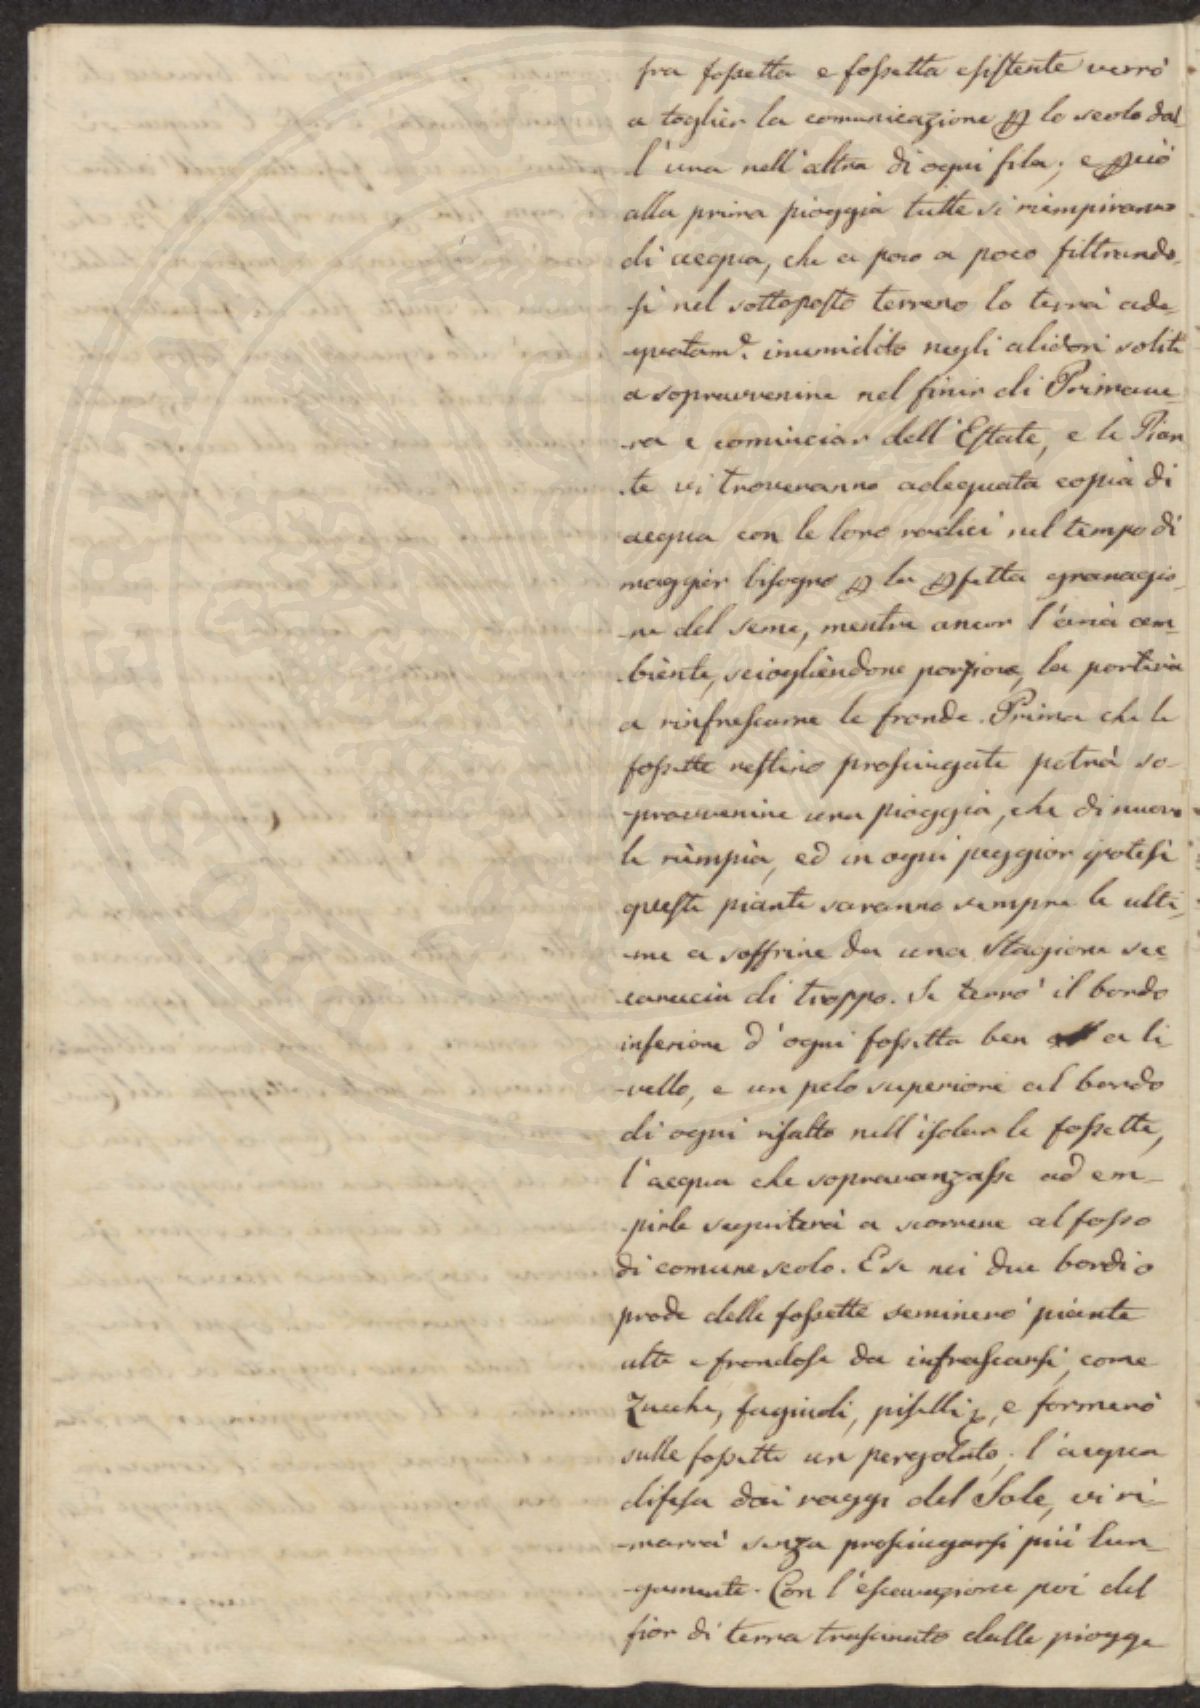 fra fossetta e fossetta esistente verrò
a toglier la comunicazione p lo scolo dal
l'una nell'altra di ogni fila; e pciò
alla prima pioggia tutte si riempiranno
di acqua, che a poco a poco filtrando
si nel sottoposto terreno lo terrà ade
quatam.e inumidito negli alidori soliti
a sopravvenire nel finir di Primave
ra e cominciar dell'Estate, e le Pian
te vi troveranno adequata copia di
acqua con le loro radici nel tempo di
maggior bisogno p la pfetta granagio
ne del seme, mentre ancor l'aria am
biente, sciogliendone porzione, la porterà
a rinfrescarne le fronde. Prima che le
fossette restino prosciugate potrà so
pravvenire una pioggia, che di nuovo
le riempia, ed in ogni peggior ipotesi
queste piante saranno sempre le ulti
me a soffrire da una Stagione sec
careccia di troppo. Se terrò il bordo
inferiore d'ogni fossetta ben a li
vello, e un pelo superiore al bordo
di ogni risalto nell'isolar le fossette,
l'acqua che sopravanzasse ad em
pirle seguiterà a scorrere al fosso
di comune scolo. E se nei due bordi o
prode delle fossette seminerò piante
alte e frondose da infrascarsi, come
Zucche, fagiuoli, piselli, e formerò
sulle fossette un pergolato; l'acqua
difesa dai raggi del Sole, vi ri
marrà senza prosciugarsi più lun
gamente. Con l'escavazione poi del
fior di terra trascinato dalle piogge
PROSPERITATI PUBLICAE